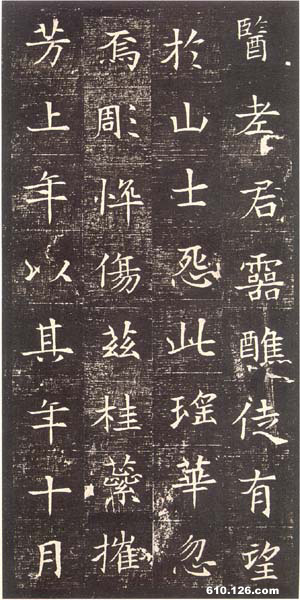 醫老君靈醮徒有望
於山士怨此瑤華忽
焉彫悴傷茲桂蘂摧
芳上年以其年十月
610.126.com